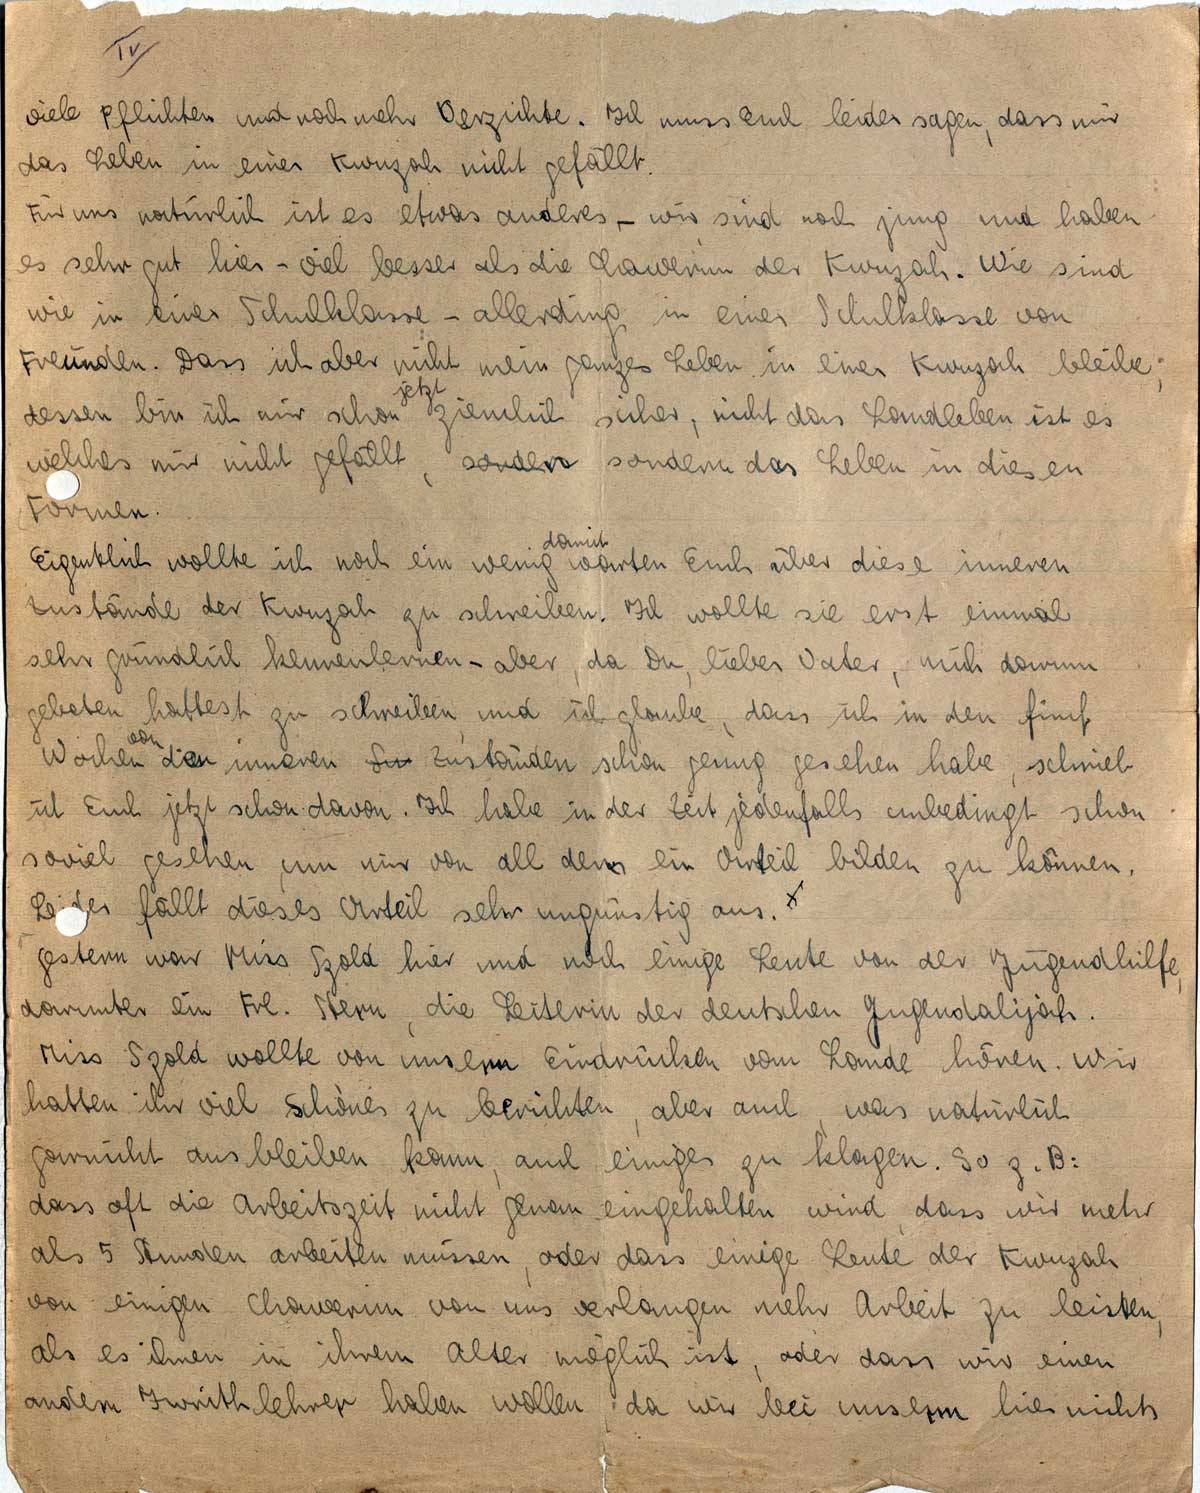 IV
viele Pflichten und noch mehr Verzichte. Ich muss Euch leider sagen, dass mir
das Leben in einer Kwuzah nicht gefällt.
Für uns natürlich ist es etwas anderes – wir sind noch jung und haben
es sehr gut hier – viel besser als die Chawerim der Kwuzah. Wir sind
wie in einer Schulklasse – allerding in einer Schulklasse von
Freunden. Dass ich aber nicht mein ganzes Leben in einer Kwuzah bleibe,
dessen bin ich mir schon jetzt ziemlich sicher, nicht das Landleben ist es
welches mir nicht gefällt, sondern sondern das Leben in diesen
Formen.
Eigentlich wollte ich noch ein wenig damit warten Euch über diese inneren
Zustände der Kwuzah zu schreiben. Ich wollte sie erst einmal
sehr gründlich kennenlernen – aber, da Du, lieber Vater, mich darum
gebeten hattest zu schreiben, und ich glaube, dass ich in den fünf
Wochen von den inneren Zu Zuständen schon genug gesehen habe, schrieb
ich Euch jetzt schon davon. Ich habe in der Zeit jedenfalls unbedingt schon
soviel gesehen um mir von all dem ein Urteil bilden zu können.
Leider fällt dieses Urteil sehr ungünstig aus. x
Gestern war Miss Szold hier und noch einige Leute von der Jugendhilfe,
darunter ein Frl. Stern, die Leiterin der deutschen Jugendalijah.
Miss Szold wollte von unsern Eindrücken vom Lande hören. Wir
hatten ihr viel Schönes zu berichten, aber auch, was natürlich
garnicht ausbleiben kann, auch einiges zu klagen. So z. B:
dass oft die Arbeitszeit nicht genau eingehalten wird, dass wir mehr
als 5 Stunden arbeiten müssen, oder dass einige Leute der Kwuzah
von einigen Chawerim von uns verlangen mehr Arbeit zu leisten,
als es ihnen in ihrem Alter möglich ist, oder dass wir einen
andern Iwrithlehrer haben wollen da wir bei unserm hier nichts